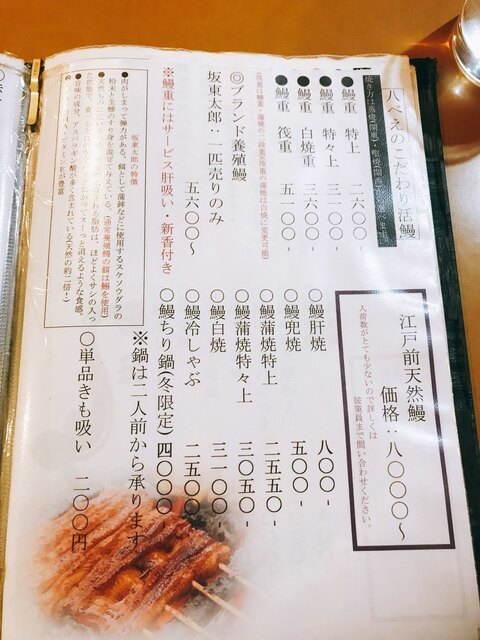 八べえのこだわり活鰻
●鰻重 特上 二六〇〇-
●鰻重 特々上 三一〇〇-
●鰻重 白焼重 三六〇〇-
●鰻重 筏重 五一〇〇-
◎ブランド養殖鰻
坂東太郎:一匹売りのみ
五六〇〇〜
※鰻重にはサービス肝吸い・新香付き
坂東太郎の特徴
●肉がしまって弾力がある。餌として蒲鉾などに使用するスケソウダラの
江戸前天然鰻
価格:八〇〇〇〜
入荷数がとても少ないので詳しくは
従業員まで問い合わせください。
〇鰻肝焼 八〇〇-
〇鰻兜焼 五〇〇-
〇鰻蒲焼特上 二五五〇-
〇鰻蒲焼特々上 三〇五〇-
〇鰻白焼 三一〇〇-
〇鰻冷しゃぶ 二五〇〇-
〇鰻ちり鍋(冬限定) 四〇〇〇-
※鍋は二人前から承ります
〇単品きも吸い 二〇〇円